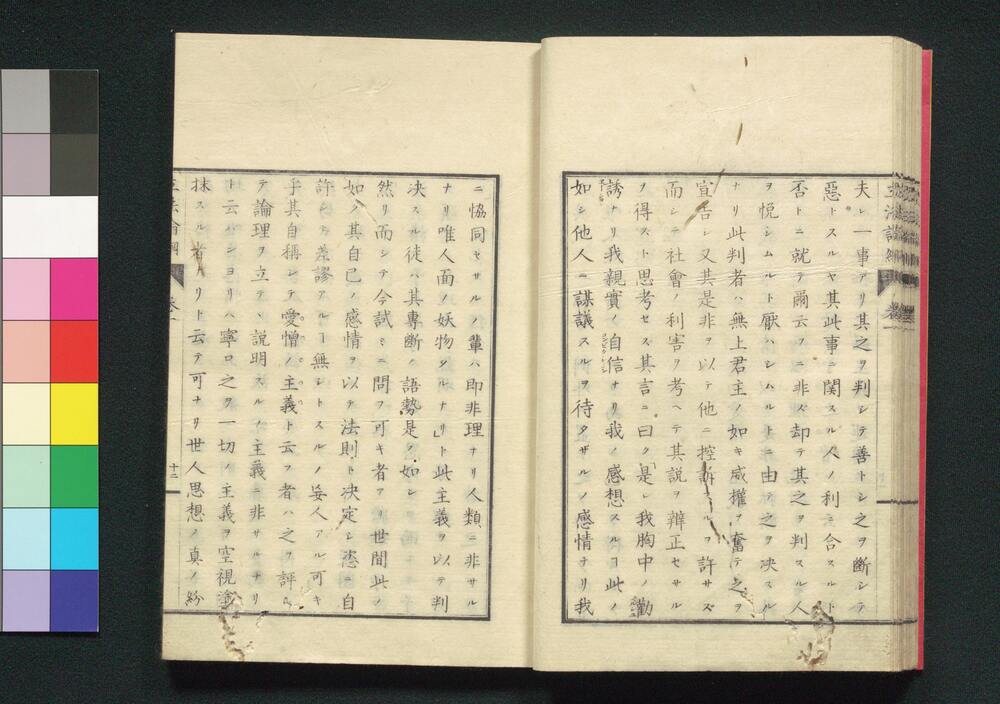 夫レ一事アリ其之ヲ判シテ善トシ之ヲ斷シテ
惡トスルヤ其此事ニ関スル人ノ利ニ合スルト
否トニ就テ爾云フニ非ズ却テ其之ヲ判スル人
ヲ悦シムルト厭ハシムルトニ由テ之ヲ决スル
ナリ此判者ハ無上君主ノ如キ威權ヲ奮テ之ヲ
宣告シ又其是非ヲ以テ他ニ控訴スルヲ許サズ
而シテ社會ノ利害ヲ考ヘテ其説ヲ辯正セサル
ヲ得スト思考セス其言ニ曰ク「是レ我胸中ノ勸
誘ナリ我親實ノ自信ナリ我ノ感想スルヿ此ノ
如シ他人ニ謀議スルヲ待タザルノ感情ナリ我
ニ恊同セサルノ輩ハ即非理ナリ人類ニ非サル
ナリ唯人面ノ妖物タルナリ」ト此主義ヲ以テ判
决スル徒ハ其專斷ノ語勢是ク如シ
然リ而シテ今試ミニ問フ可キ者アリ世間此ノ
如ク其自己ノ感情ヲ以テ法則ト决定シ恣ニ自
許シテ差謬アルヿ無シトスルノ妄人アル可キ
乎其自稱シテ愛憎ノ主義ト云フ者ハ之ヲ評ら
テ論理ヲ立テヽ説明スルノ主義ニ非サルナリ
ト云ハンヨリハ寧ロ之ヲ一切ノ主義ヲ空視塗
抹スル者ナリト云テ可ナリ世人思想ノ真ノ紛
十二